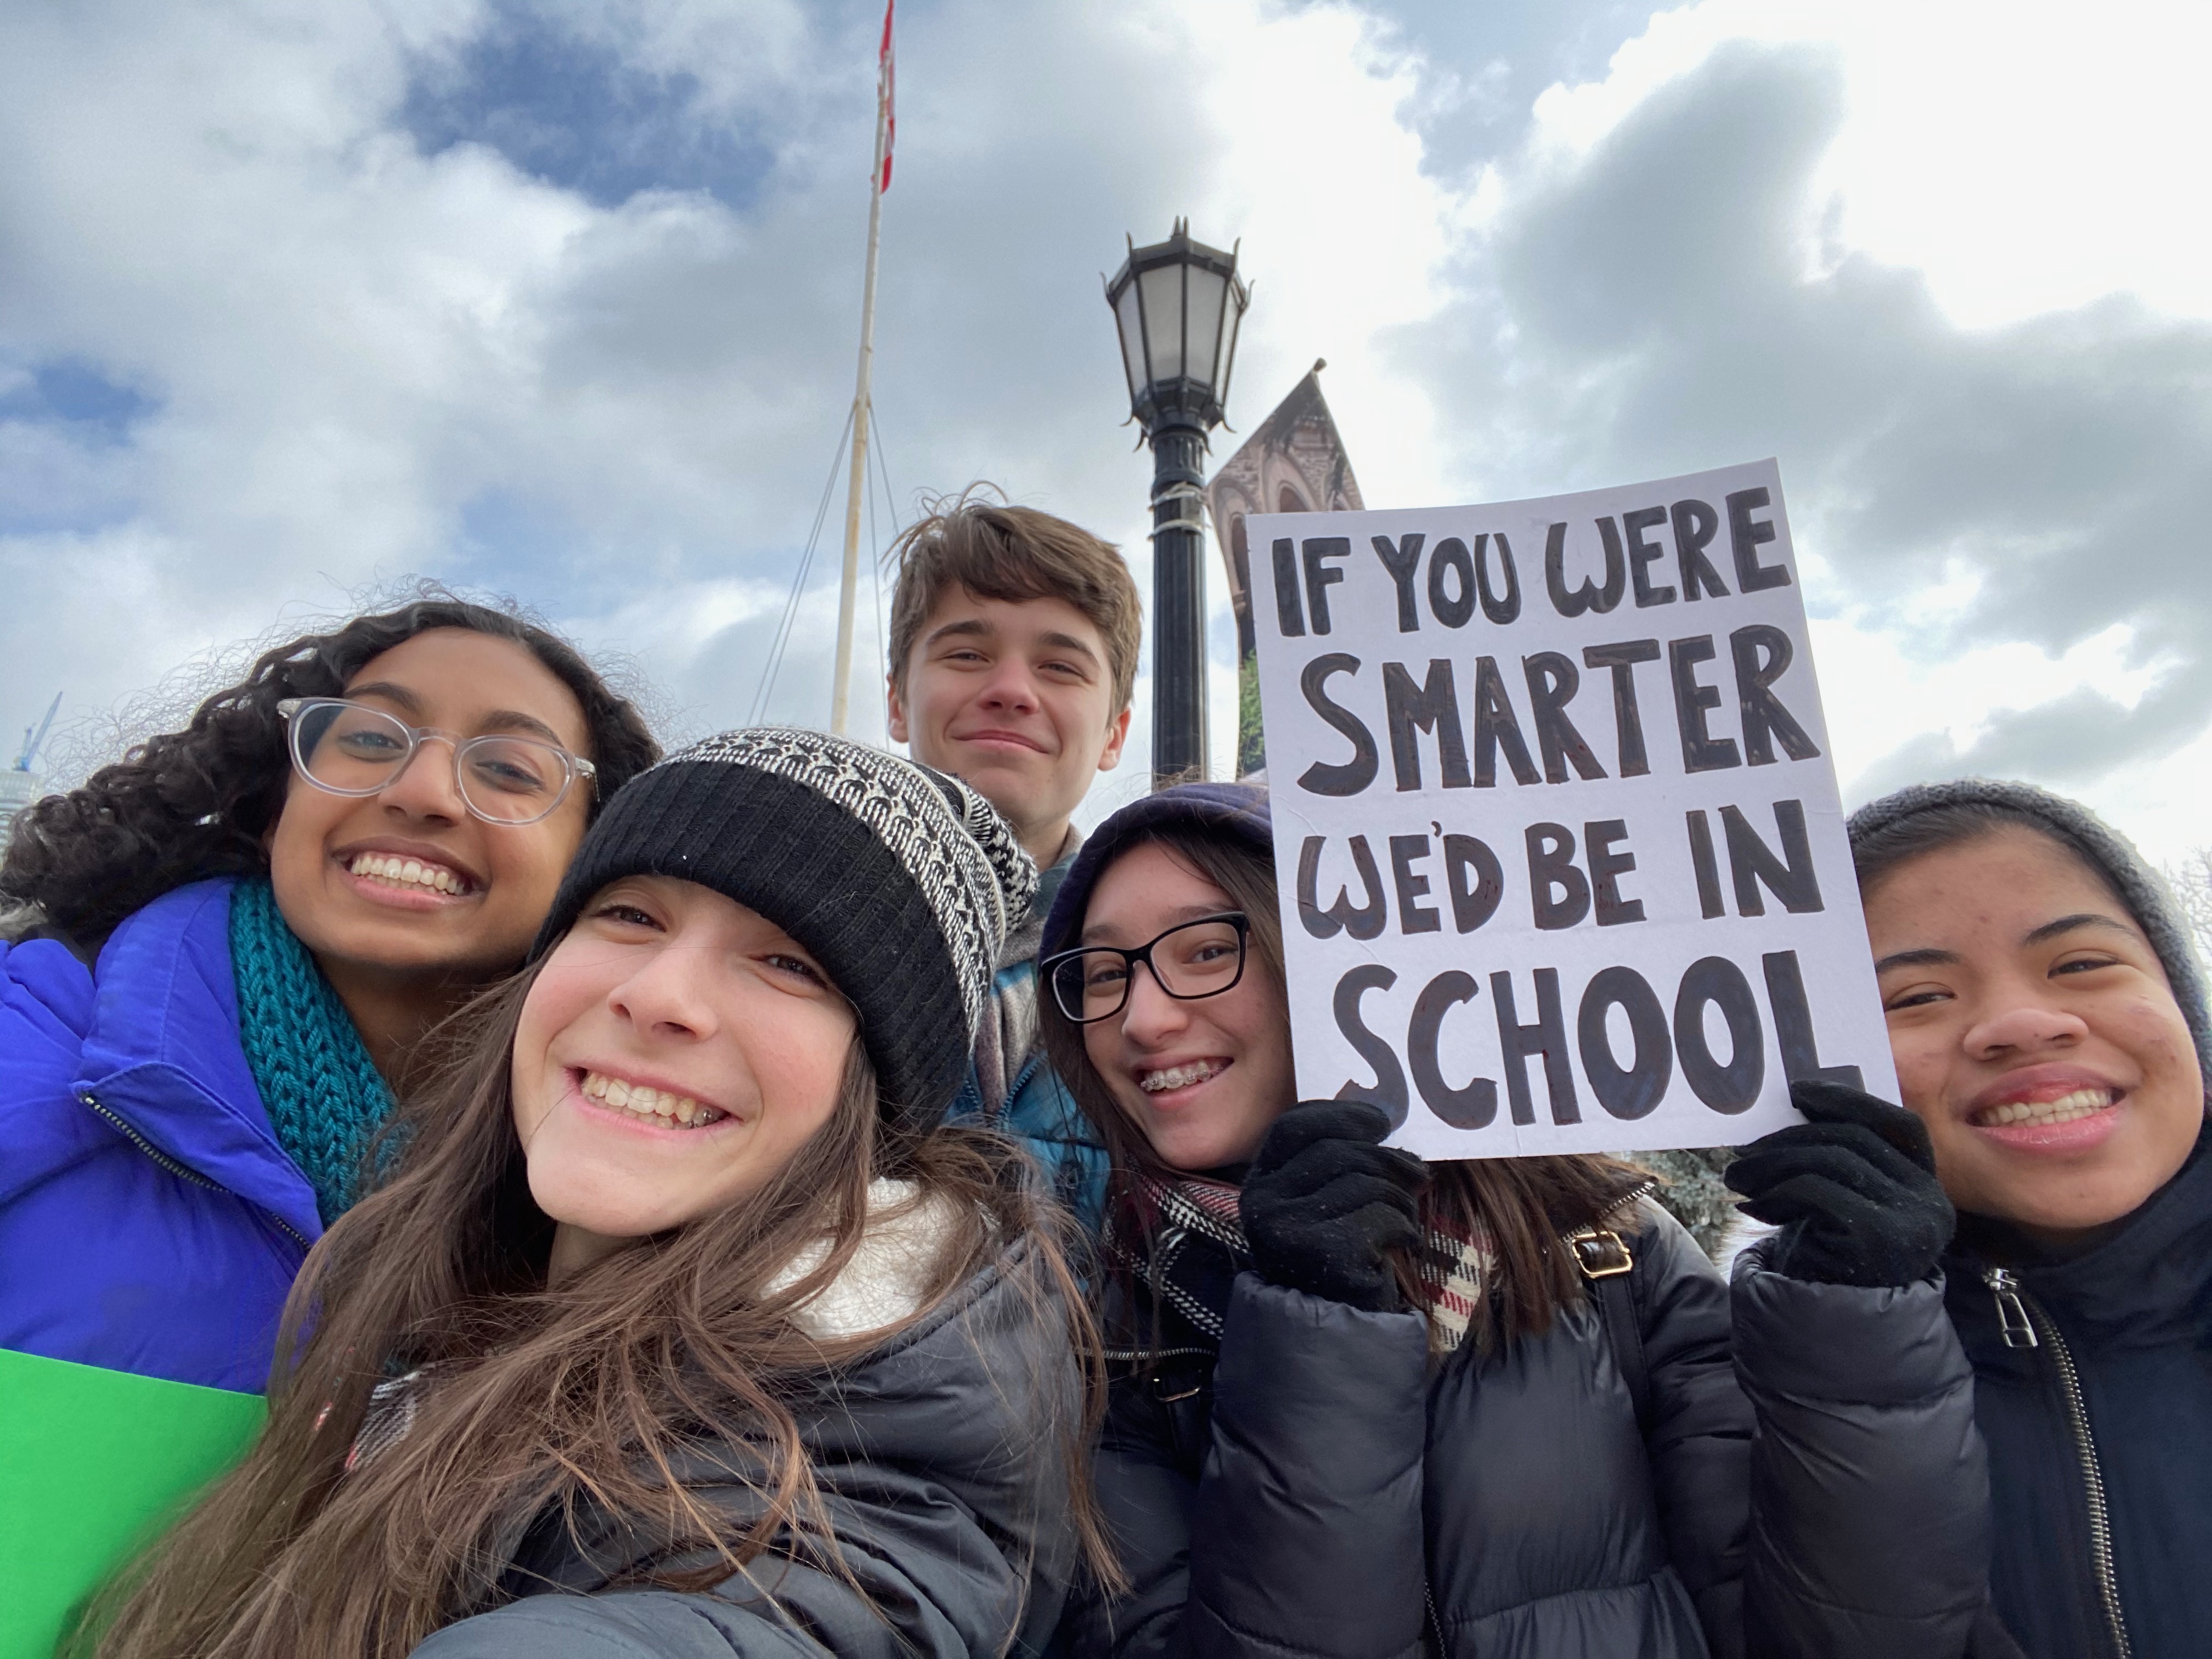 IF YOU WERE
SMARTER
WE'D BE IN
SCHOOL